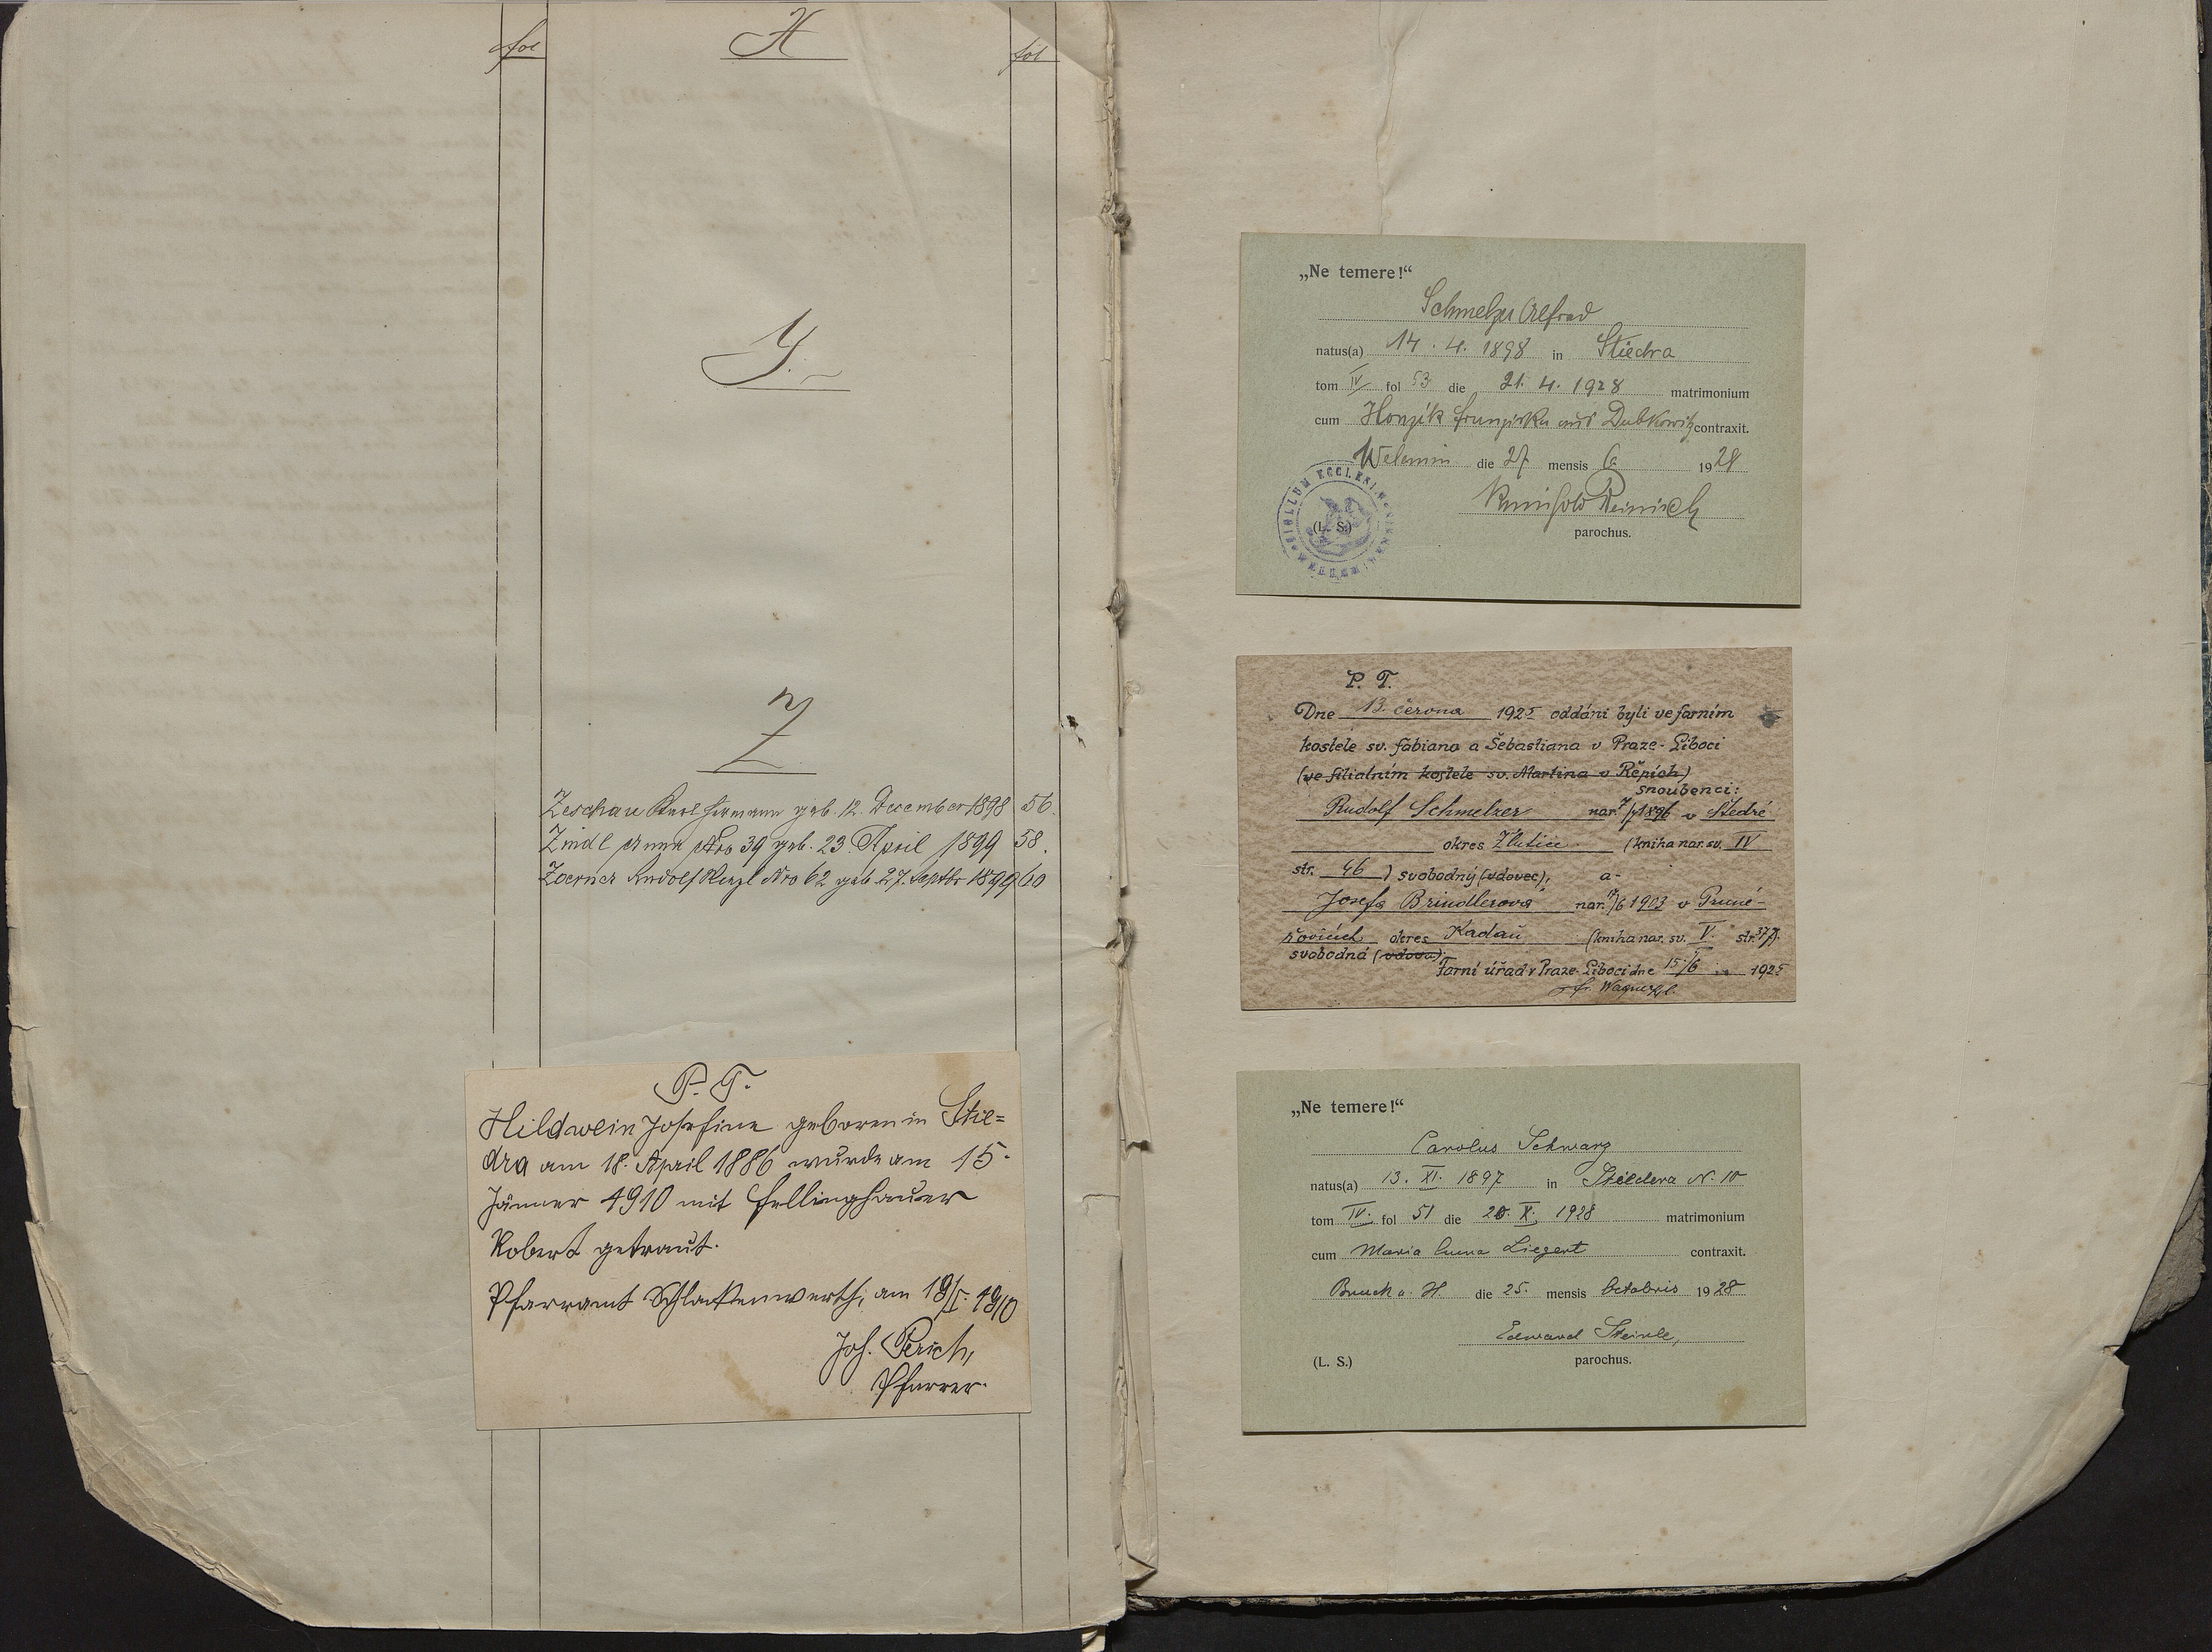 fol
X
fol
Y.
Z
Zeschau Karl Hermann geb. 12. December 1898 56.
Zindl Anna Nro 39 geb. 23. April 1899 58.
Zoerner Rudolf Nro 62 geb. 27. Septbr 1899 60
P. T.
Hildwein Josefine geboren in Stie=
dra am 18. April 1886 wurde am 15.
Jänner 1910 mit Fellinghauer
Robert getraut.
Pfarramt Schlackenwerth, am 18/I. 1910
Joh. Perich,
Pfarrer.
„Ne temere!“
Schmelzer Alfred
natus(a) 14. 4. 1898 in Stiedra
tom IV fol 53 die 21. 4. 1928 matrimonium
cum Honzik Franziska aus Dubkowitz contraxit.
Welemin die 27 mensis 6 1928
Reinisch
(L. S.)
parochus.
SIGILLUM ECCLESI
P. T.
Dne 13. června 1925 oddáni byli ve farním
kostele sv. Fabiana a Šebastiana v Praze-Liboci
(ve filialním kostele sv. Martina v Řepích)
snoubenci:
Rudolf Schmelzer nar. 1896 v Štedré
okres Žlutice (kniha nar. sv. IV
str. 46 ) svobodný (vdovec), a-
Josefa Brindlerova nar. /6 1903 v Pruné-
řovicích okres Kadaň (kniha nar. sv. V. str. 37).
svobodná (vdova).
Farní úřad v Praze-Liboci dne 15/6 1925
Fr. Wagner
„Ne temere!“
Carolus Schwarz
natus(a) 13. XI. 1897 in Stiedera N. 10
tom IV. fol 51 die 20. X. 1928 matrimonium
cum Maria Anna Liegert contraxit.
Bruck a. H. die 25. mensis Octobris 1928
Edward Steinle,
(L. S.)
parochus.